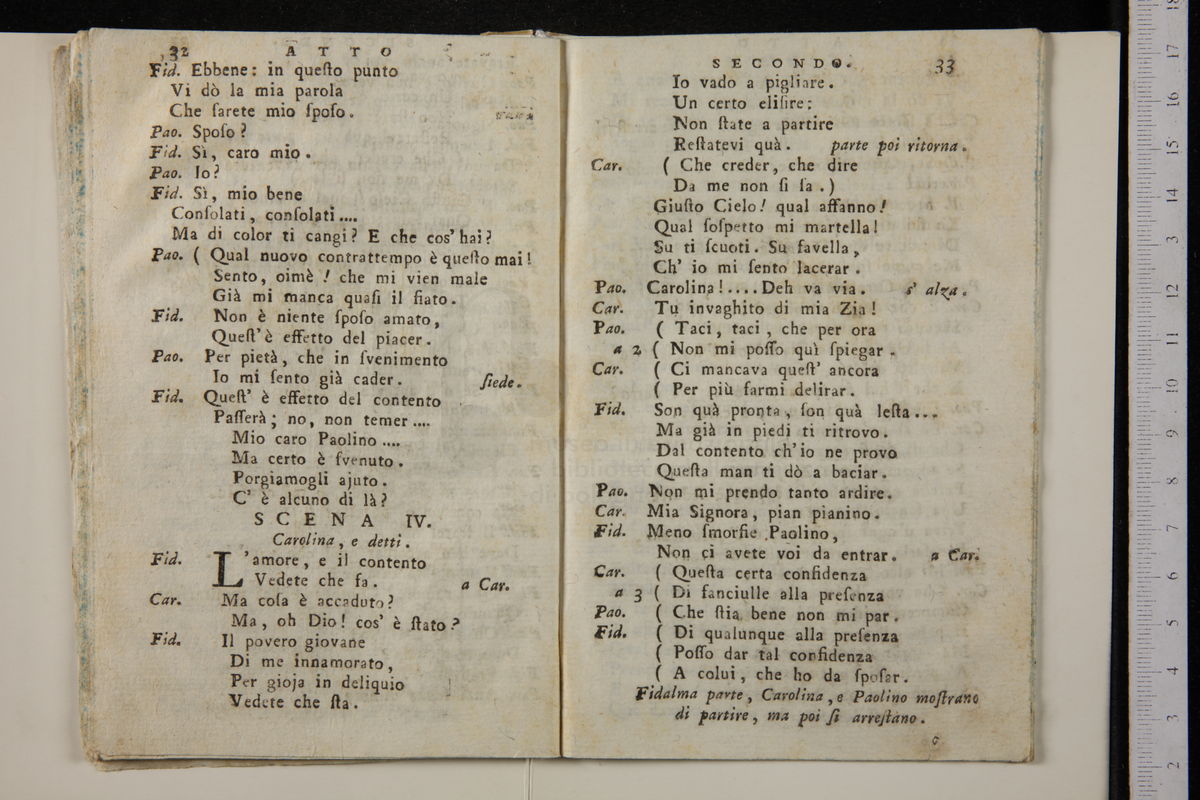 32 ATTO
Fid. Ebbene: in queſto punto
Vi dò la mia parola
Che ſarete mio ſpoſo.
Pao. Spoſo?
Fid. Sì, caro mio.
Pao. Io?
Fid. Sì, mio bene
Conſolati, conſolati....
Ma di color ti cangi? E che cos' hai?
Pao. ( Qual nuovo contrattempo è queſto mai!
Sento, oimè! che mi vien male
Già mi manca quaſi il fiato.
Fid. Non è niente ſpoſo amato,
Queſt' è effetto del piacer.
Pao. Per pietà, che in ſvenimento
Io mi ſento già cader. ſiede.
Fid. Queſt' è effetto del contento
Paſſerà; no, non temer....
Mio caro Paolino....
Ma certo è ſvenuto.
Porgiamogli ajuto.
C' è alcuno di là?
SCENA IV.
Carolina, e detti.
Fid. L'amore, e il contento
Vedete che fa. a Car.
Car. Ma coſa è accaduto?
Ma, oh Dio! cos' è ſtato?
Fid. Il povero giovane
Di me innamorato,
Per gioja in deliquio
Vedete che ſta.
SECONDO. 33
Io vado a pigliare.
Un certo eliſire;
Non ſtate a partire
Reſtatevi quà. parte poi ritorna.
Car. ( Che creder, che dire
Da me non ſi ſa.)
Giuſto Cielo! qual affanno!
Qual ſoſpetto mi martella!
Su ti ſcuoti. Su favella,
Ch' io mi ſento lacerar.
Pao. Carolina!....Deh va via. s' alza.
Car. Tu invaghito di mia Zia!
Pao. ( Taci, taci, che per ora
a 2 ( Non mi poſſo quì ſpiegar.
Car. ( Ci mancava queſt' ancora
( Per più farmi delirar.
Fid. Son quà pronta, ſon quà leſta...
Ma già in piedi ti ritrovo.
Dal contento ch' io ne provo
Queſta man ti dò a baciar.
Pao. Non mi prendo tanto ardire.
Car. Mia Signora, pian pianino.
Fid. Meno ſmorfie Paolino,
Non ci avete voi da entrar. a Car.
Car. ( Queſta certa confidenza
a 3 ( Di fanciulle alla preſenza
Pao. ( Che ſtia bene non mi par.
Fid. ( Di qualunque alla preſenza
( Poſſo dar tal confidenza
( A colui, che ho da ſpoſar.
Fidalma parte, Carolina, e Paolino moſtrano
di partire, ma poi ſi arreſtano.